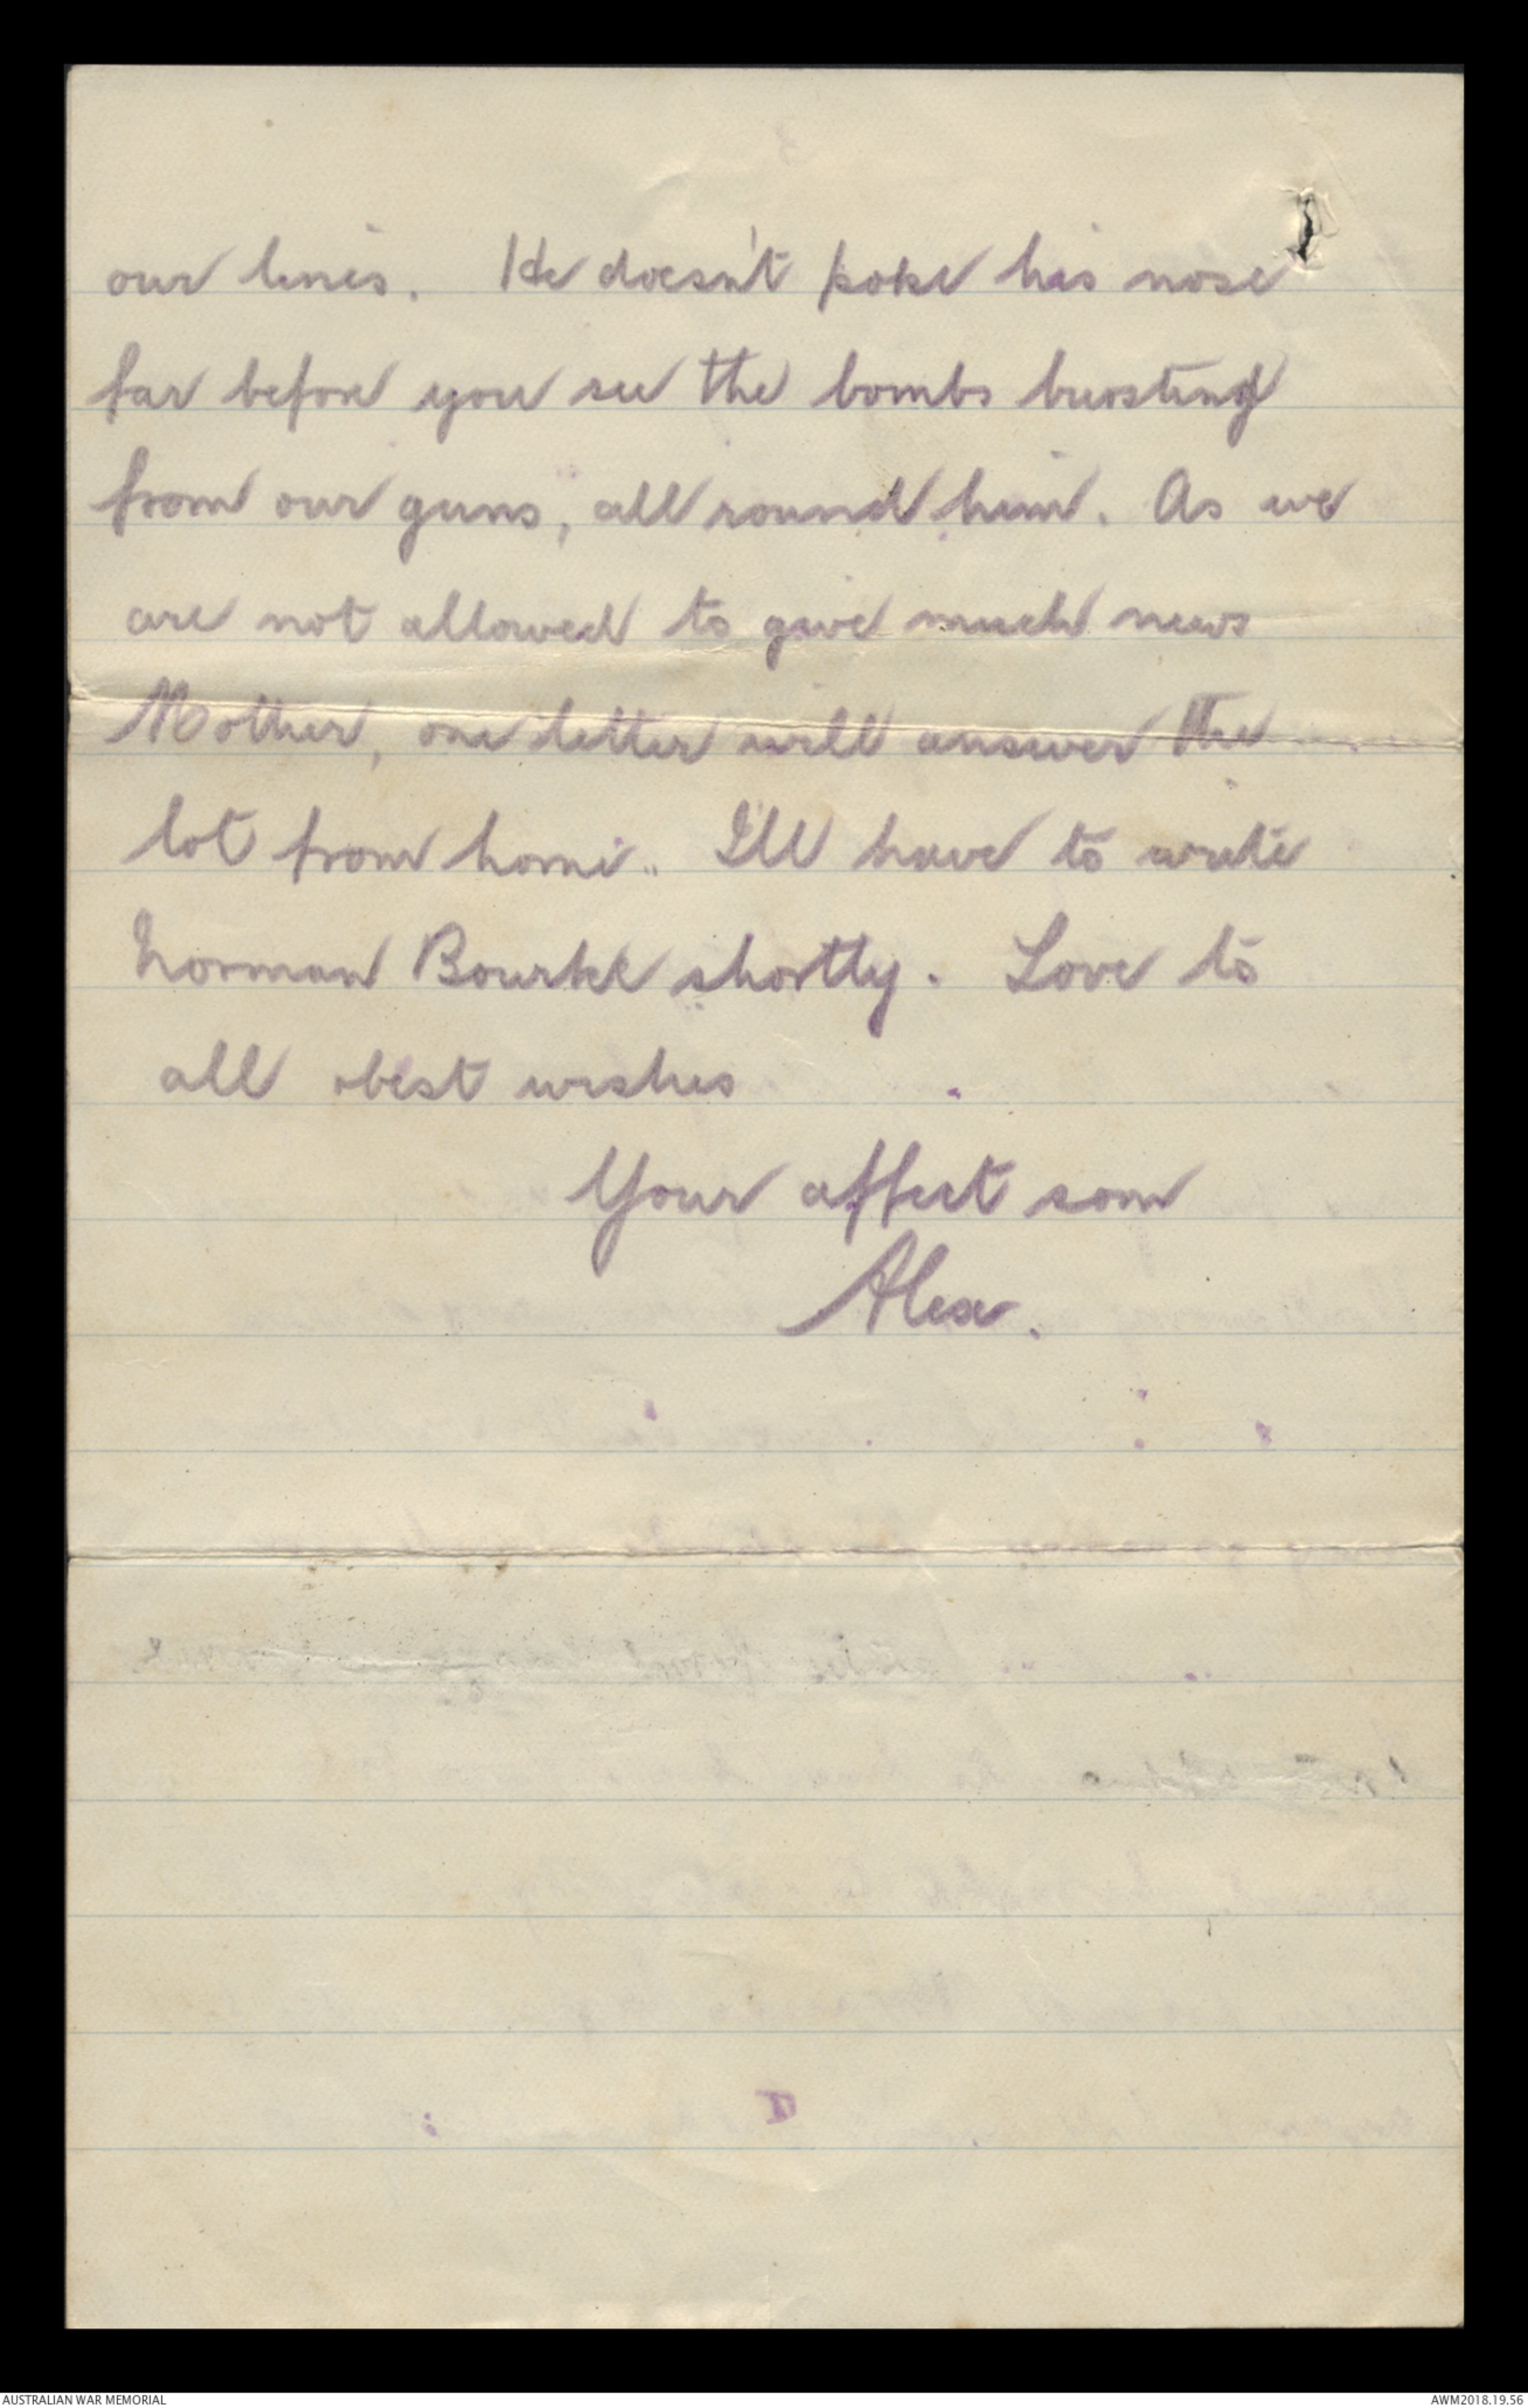 our lines. He doesn't poke his nose
far before you see the bombs bursting
from our guns, all round him. As we
are not allowed to give much news
Mother, one letter will answer the
lot from home. I'll have to write
Norman Bourke shortly. Love to
all & best wishes
Your affect son
Alex.
AUSTRALIAN WAR MEMORIAL
AWM2018.19.56